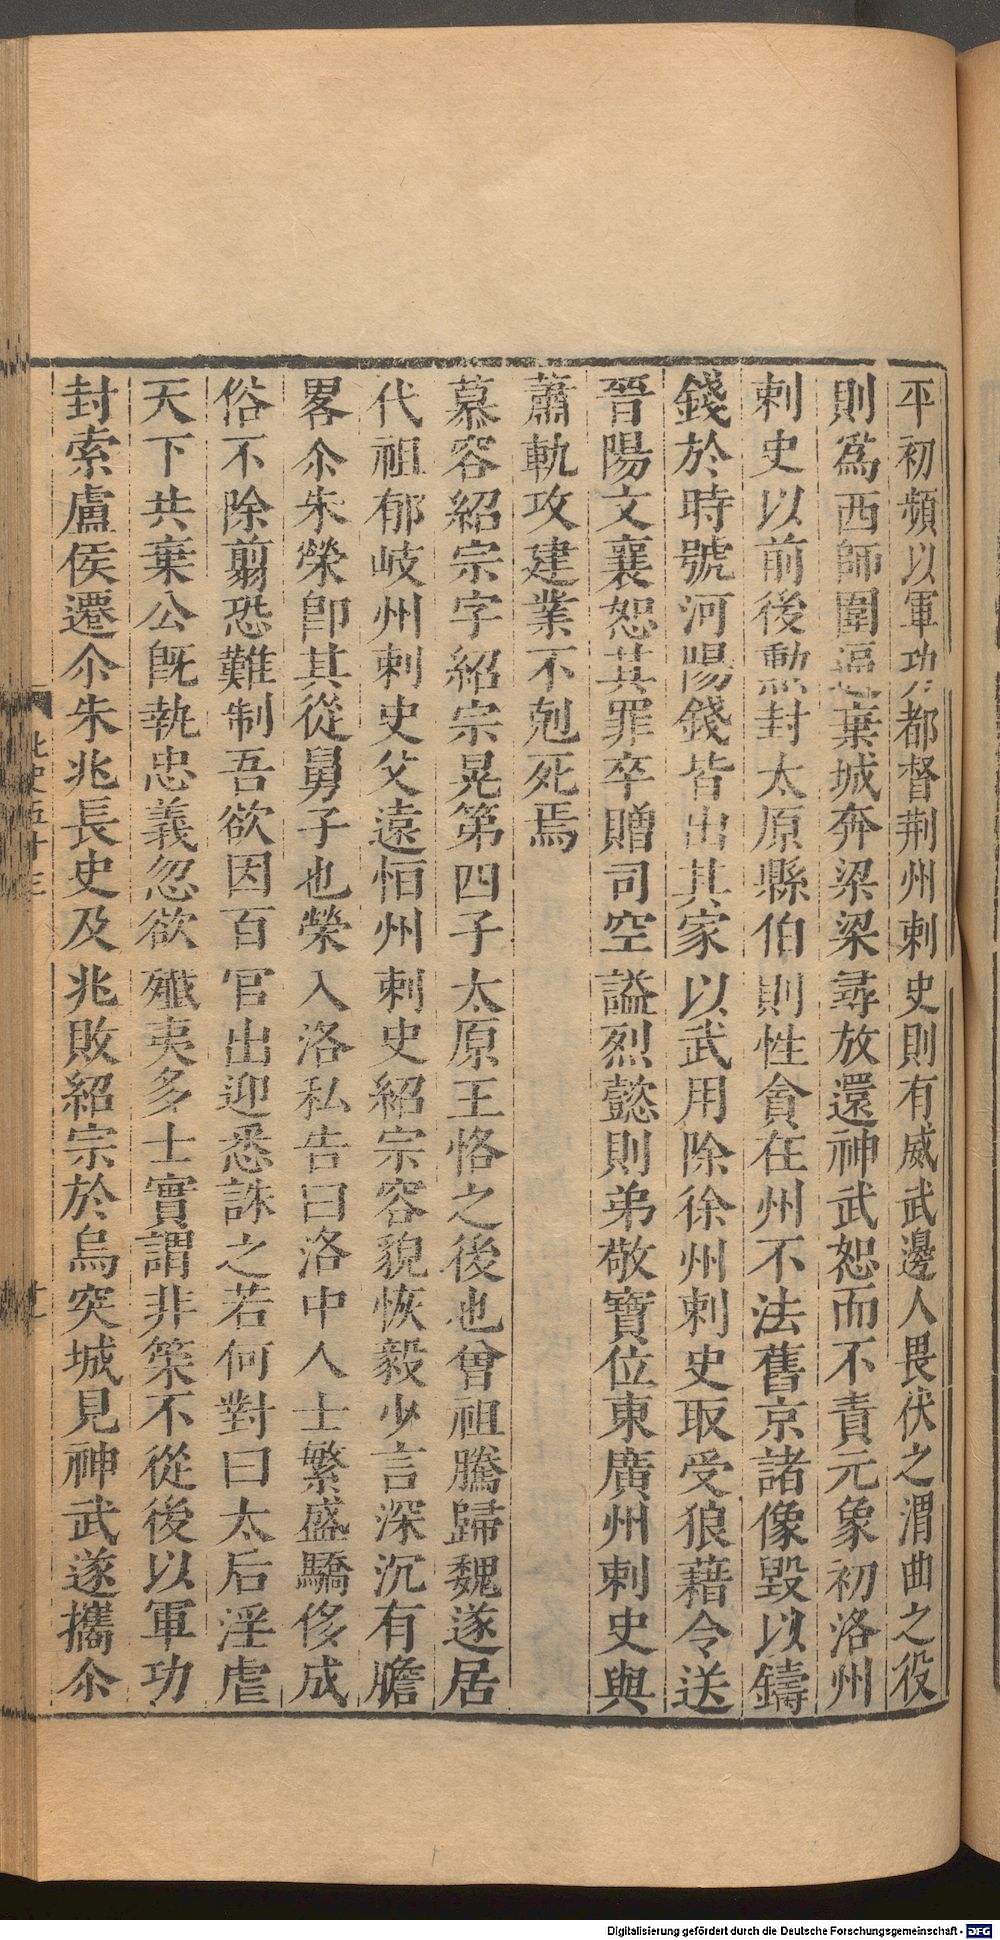 平初頻以軍功㑹都督荆州刺史則有威武邊人畏伏之渭曲之役
則爲西師圍逼棄城奔梁梁尋放還神武恕而不責元象初洛州
刺史以前後勲封太原縣伯則性貪在州不法舊京諸像毀以鑄
錢於時號河陽錢皆出其家以武用除徐州刺史取受狼藉令送
晉陽文襄恕其罪卒贈司空謚烈懿則弟敬寶位東廣州刺史與
蕭軌攻建業不剋死焉
慕容紹宗字紹宗晃第四子太原王恪之後也曾祖騰歸魏遂居
代祖郁岐州刺史父遠恒州刺史紹宗容貌恢毅少言深沉有膽
畧尒朱榮卽其從舅子也榮入洛私告曰洛中人士繁盛驕侈成
俗不除翦恐難制吾欲因百官出迎悉誅之若何對曰太后淫虐
天下共棄公旣執忠義忽欲殲夷多士實謂非策不從後以軍功
封索盧侯遷尒朱兆長史及兆敗紹宗於烏突城見神武遂攜尒
北史五十三